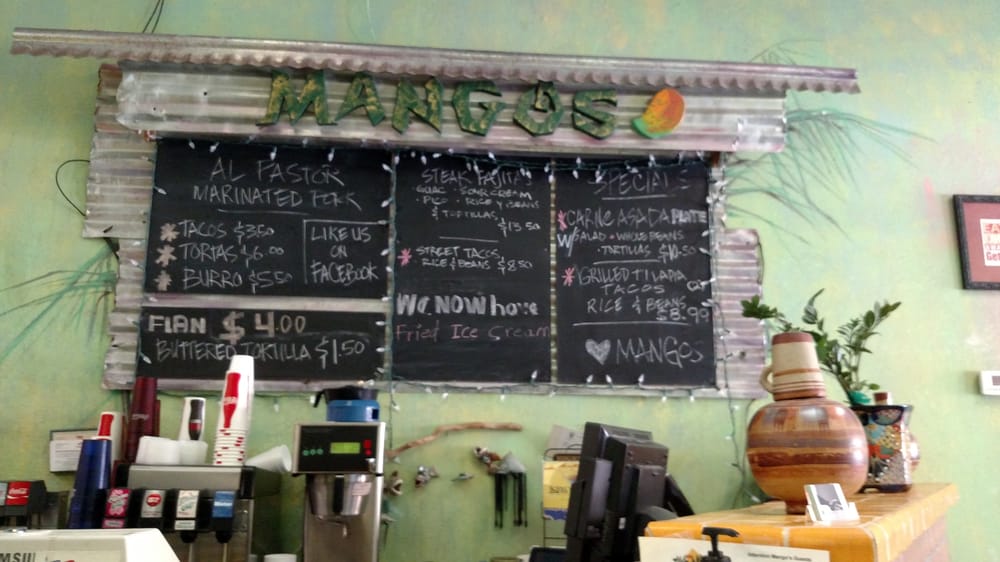 MANGOS
AL PASTOR
MARINATED PORK
TACOS $3.50
TORTAS $6.00
BURRO $5.50
LIKE US
ON
FACEBOOK
FLAN $4.00
BUTTERED TORTILLA $1.50
STEAK FAJITAS
GUAC • SOUR CREAM
• PICO • RICE Y BEANS
& TORTILLAS
$13.50
STREET TACOS
RICE & BEANS $8.50
We NOW have
Fried Ice Cream
SPECIALS
CARNE ASADA PLATE
W/ SALAD • WHOLE BEANS
TORTILLAS $10.50
GRILLED TILAPIA
TACOS
RICE & BEANS
$8.99
MANGOS
Attention Mango's Guests